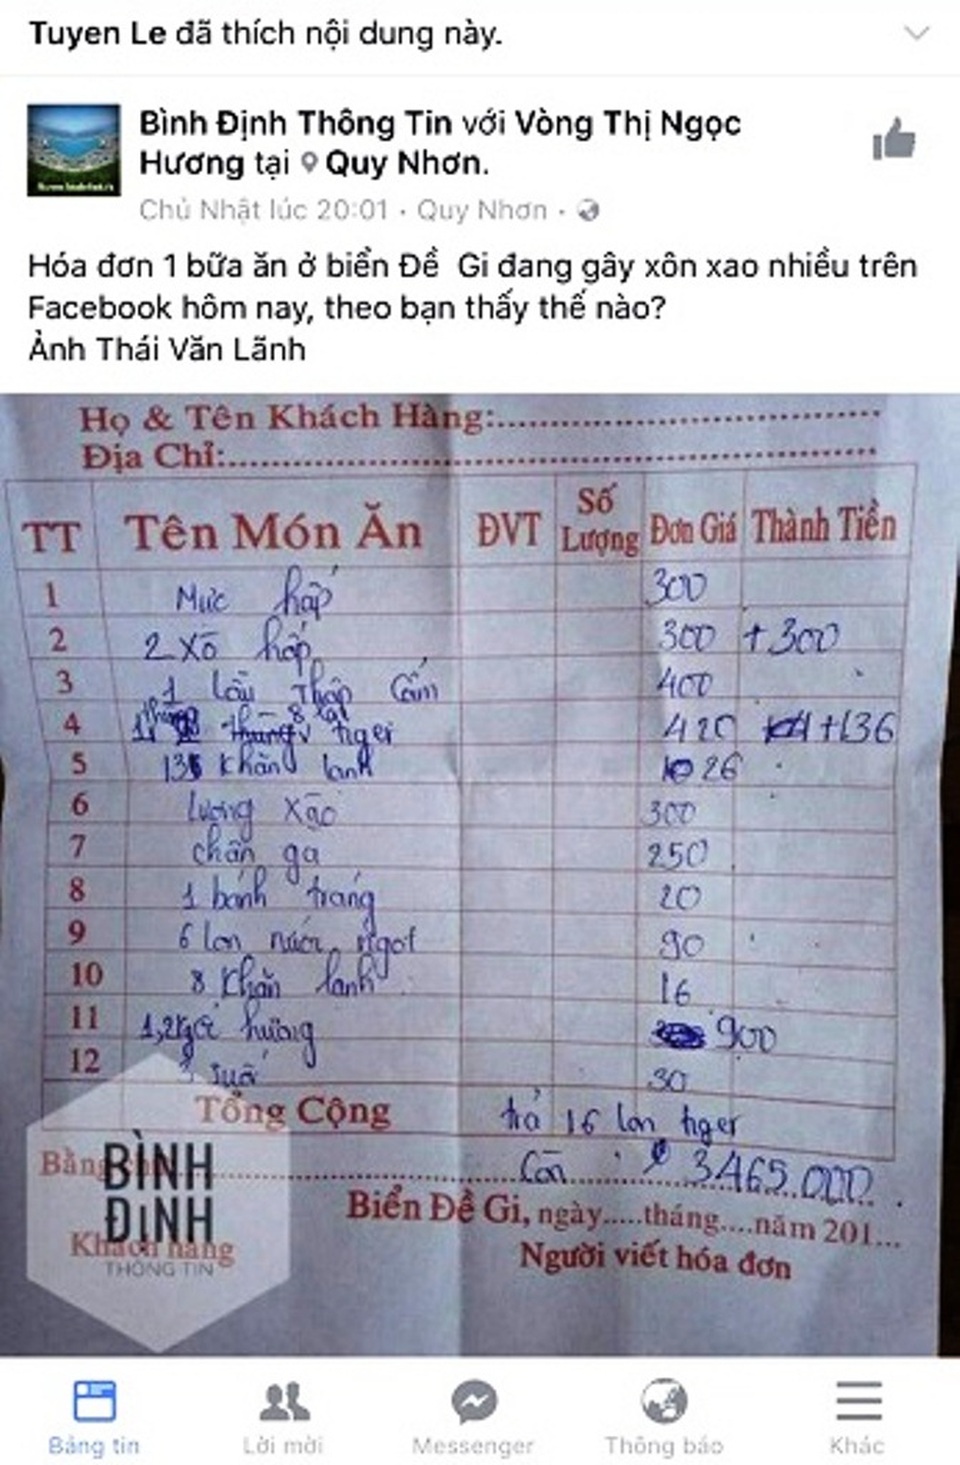 Tuyen Le đã thích nội dung này.
Bình Định Thông Tin với Vòng Thị Ngọc
Hương tại Quy Nhơn.
Chủ Nhật lúc 20:01 · Quy Nhơn ·
Hóa đơn 1 bữa ăn ở biển Đề Gi đang gây xôn xao nhiều trên
Facebook hôm nay, theo bạn thấy thế nào?
Ảnh Thái Văn Lãnh
Họ & Tên Khách Hàng:
Địa Chỉ:
TT Tên Món Ăn ĐVT Số Lượng Đơn Giá Thành Tiền
1 Mực hấp 300
2 2 xō hấp 300 +300
3 1 lẩu thập cẩm 400
4 thùng tiger 420 +136
5 khăn lanh 26
6 lương xào 300
7 chân ga 250
8 1 bánh tráng 20
9 6 lon nước ngot 90
10 8 khăn lanh 16
11 1,2kg hương 900
12 3 suối 30
Tổng Cộng trả 16 lon tiger
Bằng Còn 3465.000
Biển Đề Gi, ngày.....tháng....năm 201...
Khách hàng Người viết hóa đơn
BÌNH
ĐỊNH
THÔNG TIN
Bảng tin Lời mời Messenger Thông báo Khác